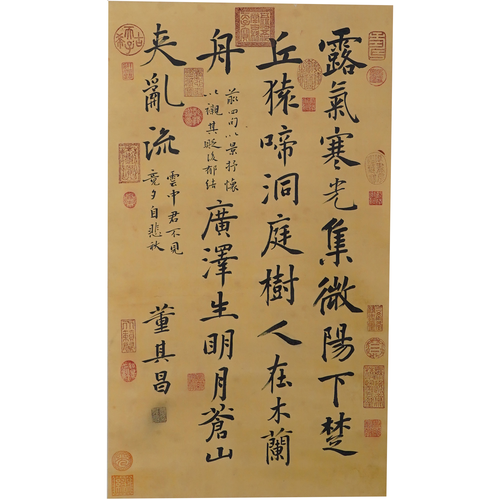 露氣寒光集微陽下楚
丘猿啼洞庭樹人在木蘭
舟
前四句以景抒懷
以襯其貶後郁結
廣澤生明月蒼山
夾亂流
雲中君不見
竟夕自悲秋
董其昌